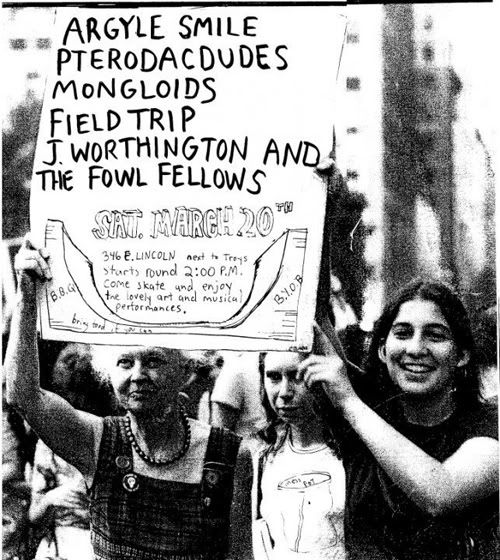 ARGYLE SMILE
PTERODACDUDES
MONGLOIDS
FIELD TRIP
J. WORTHINGTON AND
THE FOWL FELLOWS
SAT. MARCH 20TH
346 E. LINCOLN next to Troys
Starts round 2:00 P.M.
Come skate and enjoy
the lovely art and musical
performances.
B.B.Q
B.Y.O.B
bring food if you can